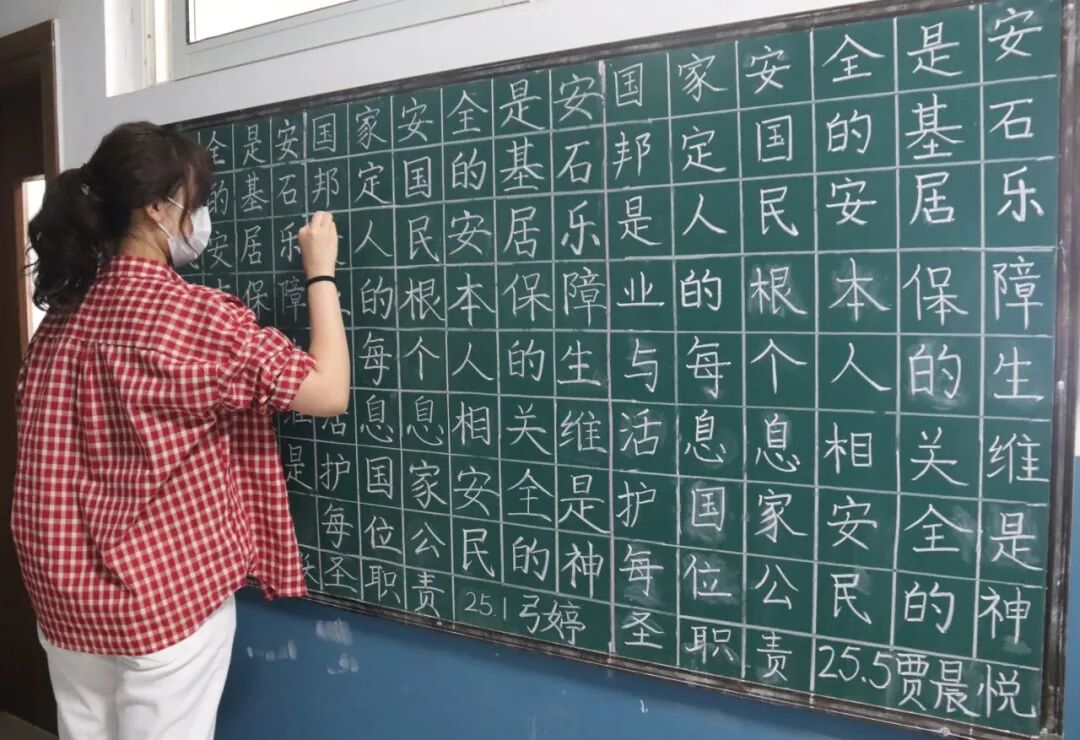 全是安国家安全是安国家安全是安
的基石邦定国的基石邦定国的基石
安居乐人民安居乐是人民安居乐
保障的根本保障业的根本保障
每个人的生与每个人的生
活息息相关维活息息相关维
是护国家安全是护国家安全是
每位公民的神每位公民的神
圣职责 25.1弓婷 圣职责 25.5贾晨悦